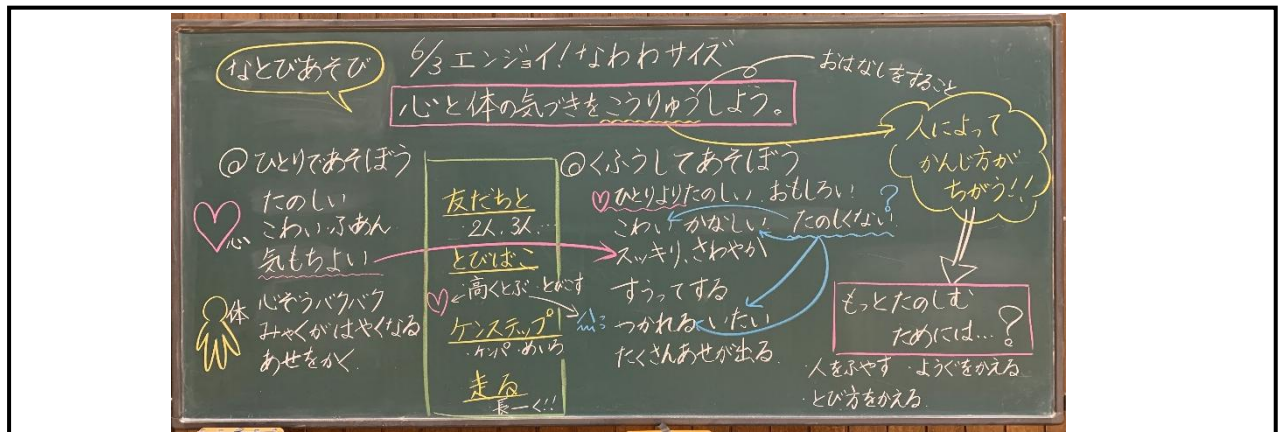 なとびあそび
6/3 エンジョイ!なわわサイズ
おはなしをすること
心と体の気づきをこうりゅうしよう。
人によって
かんじ方が
ちがう!!
◎ひとりであそぼう
たのしい
こわい ふあん
気もちよい
心
体
心ぞうバクバク
みゃくがはやくなる
あせをかく
友だちと
・2人、3人…
とびばこ
・高くとぶ・とびこす
ケンステップ
・ケンパ・めいろ
走る
長ーく!!
◎くふうしてあそぼう
ひとりよりたのしい おもしろい!
こわい かなしい たのしくない?
スッキリ、さわやか
すうってする
つかれる いたい
たくさんあせが出る
もっとたのしむ
ためには…?
・人をふやす ・ようぐをかえる
・とび方をかえる